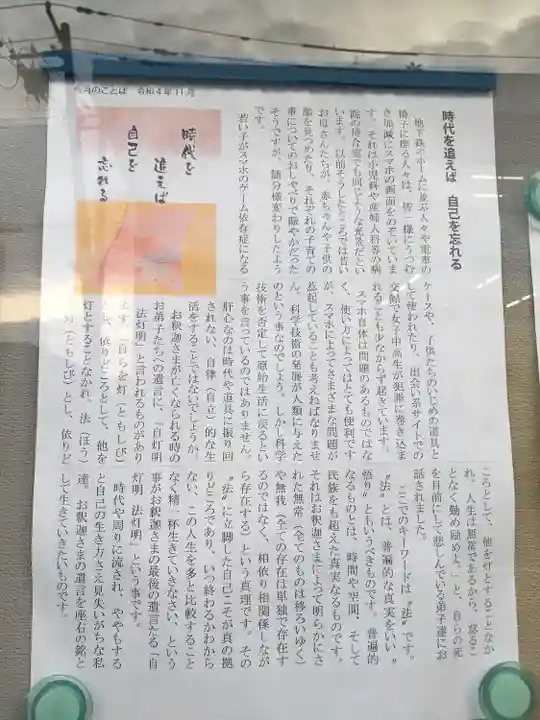 今月のことば 令和4年11月
時代を
追えば
自己を
忘れる
時代を追えば 自己を忘れる
地下鉄のホームに並ぶ人々や電車の
椅子に座る人々は、皆一様にうつむ
き加減にスマホの画面をのぞいていま
す。それは小児科や産婦人科等の病
院の待合室でも同じような光景だとい
います。以前そうしたところでは若い
お母さんたちが、赤ちゃんや子供の
顔を見つめたり、それぞれの子育ての
事についてのおしゃべりで賑やかだった
そうですが、随分様変わりしたよう
です。
若い子がスマホのゲーム依存症になる
ケースや、子供たちのいじめの道具と
して使われたり、出会い系サイトでの
交際で女子中高生が犯罪に巻き込ま
れることも少なからず起きています。
スマホ自体は問題のあるものではな
く、使い方によってはとても便利です
が、スマホによってさまざまな問題が
惹起していることも考えねばなりませ
ん。科学技術の発展が人類に与えた
のという事なのでしょう。しかし科学
技術を否定して原始生活に戻るとい
う事を言っているのではありません。
肝心なのは時代や道具に振り回
されない、自律（自立）的な生
活をすることではないでしょうか。
お釈迦さまが亡くなられる時の
お弟子たちへの遺言に、「自灯明
法灯明」と言われるものがあり
ます。「自らを灯（ともしび）
とし、依りどころとして、他を
灯とすることなかれ。法（ほう）
を灯（ともしび）とし、依りど
ころとして、他を灯とすることなか
れ。人生は無常であるから、怠るこ
となく勤め励めよ。」と、自らの死
を目前にして悲しんでいる弟子達にお
話されました。
ここでのキーワードは〝法〟です。
〝法〟とは、普遍的な真実をいい〝
悟り〟ともいうべきものです。普遍的
なるものとは、時間や空間、そして
民族をも超えた真実なるものです。
それはお釈迦さまによって明らかにさ
れた無常（全てのものは移ろいゆく）
や無我（全ての存在は単独で存在す
るのではなく、相依り相関係しなが
ら存在する）という真理です。その
〝法〟に立脚した自己こそが真の拠
りどころであり、いつ終わるかわから
ない、この人生を多と比較すること
なく精一杯生きていきなさい、という
事がお釈迦さまの最後の遺言たる「自
灯明 法灯明」という事です。
時代や周りに流され、ややもする
と自己の生き方さえ見失いがちな私
達。お釈迦さまの遺言を座右の銘と
して生きていきたいものです。